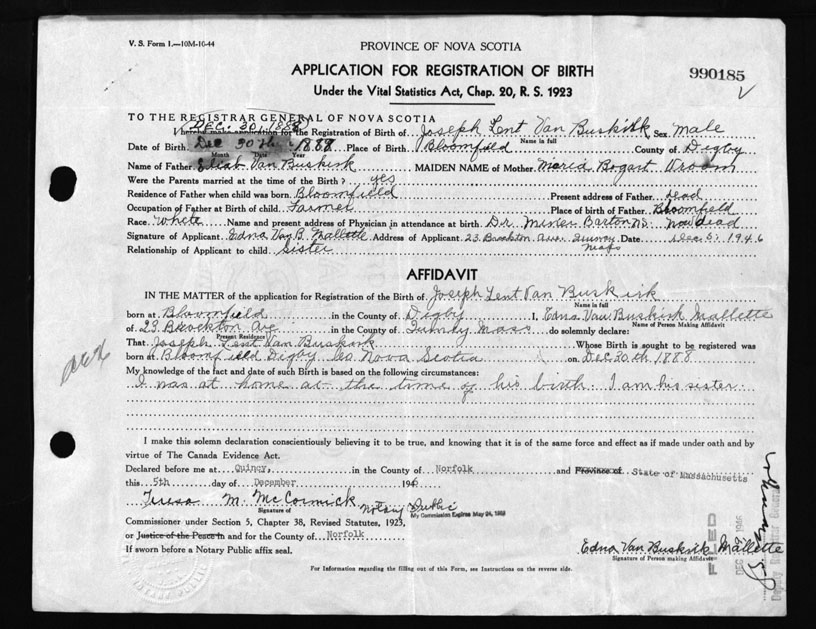 V. S. Form 1.—10M-10-44
PROVINCE OF NOVA SCOTIA
APPLICATION FOR REGISTRATION OF BIRTH
990185
Under the Vital Statistics Act, Chap. 20, R. S. 1923
TO THE REGISTRAR GENERAL OF NOVA SCOTIA
DEC. 30, 1888
I hereby make application for the Registration of Birth of Joseph Lent Van Buskirk Sex Male
Name in full
Date of Birth Dec 30th 1888 Place of Birth Bloomfield County of Digby
Month Date Year
Name of Father Eliab Van Buskirk MAIDEN NAME of Mother Maria Bogart Vroom
Were the Parents married at the time of the Birth? yes
Residence of Father when child was born. Bloomfield Present address of Father dead
Occupation of Father at Birth of child. Farmer Place of birth of Father Bloomfield
Race. White Name and present address of Physician in attendance at birth. Dr Barton dead
Signature of Applicant Edna Van B. Mallette Address of Applicant 23 Brockton Ave. Quincy Mass Date Dec 5. 1946
Relationship of Applicant to child. Sister
AFFIDAVIT
IN THE MATTER of the application for Registration of the Birth of Joseph Lent Van Buskirk
Name in full
born at Bloomfield in the County of Digby I, Edna Van Buskirk Mallette
Name of Person Making Affidavit
of 23 Brockton Ave in the County of Quincy Mass do solemnly declare:
Present Residence
That Joseph Lent Van Buskirk Whose Birth is sought to be registered was
born at Bloomfield Digby Co. Nova Scotia on Dec 30th 1888
My knowledge of the fact and date of such Birth is based on the following circumstances:
I was at home at the time of his birth. I am his sister.
I make this solemn declaration conscientiously believing it to be true, and knowing that it is of the same force and effect as if made under oath and by
virtue of The Canada Evidence Act.
Declared before me at Quincy, in the County of Norfolk and Province of State of Massachusetts
this 5th day of December 1946
Teresa M. McCormick Notary Public
Signature of
My Commission Expires May 24,
Commissioner under Section 5, Chapter 38, Revised Statutes, 1923,
or Justice of the Peace in and for the County of Norfolk
If sworn before a Notary Public affix seal.
Edna Van Buskirk Mallette
Signature of Person making Affidavit
For Information regarding the filling out of this Form, see Instructions on the reverse side.
FILED
DEC 1946